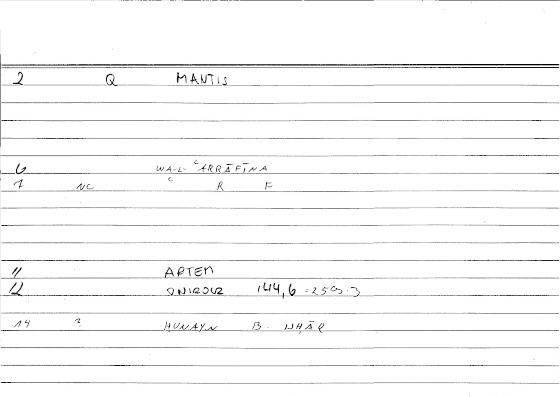 2 Q MANTIS
6 WA-L-ʿARRĀFĪNA
7 NC ʿ R F
11 ARTEM
12 ONIROCR 144,6 = 259.3
14 ? ḤUNAYN B. ISḤĀQ